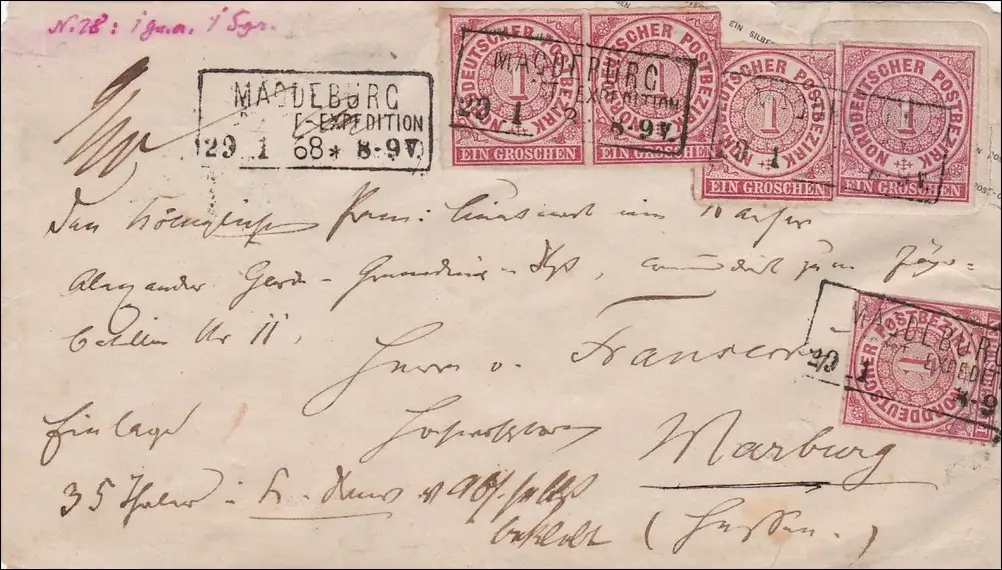 N. 28: 1 gu.a. 1 Sgr.
MAGDEBURG
EXPEDITION
29 1 68 * 8-9 V
NORDDEUTSCHER POSTBEZIRK
1
EIN GROSCHEN
NORDDEUTSCHER POSTBEZIRK
1
EIN GROSCHEN
MAGDEBURG
EXPEDITION
29 1 8-9 V
NORDDEUTSCHER POSTBEZIRK
1
EIN GROSCHEN
NORDDEUTSCHER POSTBEZIRK
1
EIN GROSCHEN
EIN SILBE
Den Königlich Preuss: Lieutenant im Kaiser
Alexander Garde-Grenadier-Rgt, commandirt zum Jäger-
bataillon Nr 11,
Herrn v. Fransecky
NORDDEUTSCHER POSTBEZIRK
1
MAGDEBURG
EXPEDIT
29 1 8-9
Einlage
Hochwohlgeboren
Marburg
35 Thaler
(Hessen.)